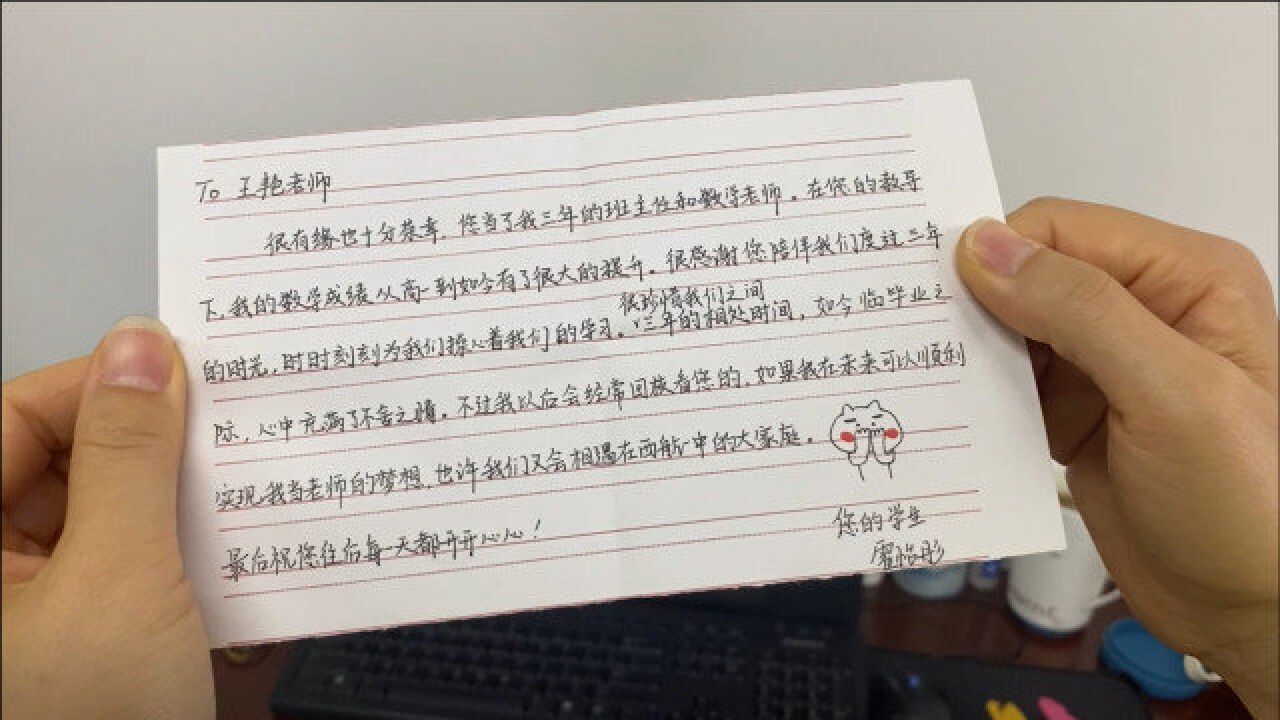 To 王艳老师
很有缘也十分荣幸，您当了我三年的班主任和数学老师。在您的教导
下，我的数学成绩从高一到如今有了很大的提升。很感谢您陪伴我们度过三年
很珍惜我们之间
的时光，时时刻刻为我们操心着我们的学习。三年的相处时间，如今临毕业之
际，心中充满了不舍之情。不过我以后会经常回族看您的，如果我在未来可以顺利
实现我当老师的梦想，也许我们又会相遇在西航中的大家庭。
最后祝您往后每一天都开开心心！
您的学生
怡彤